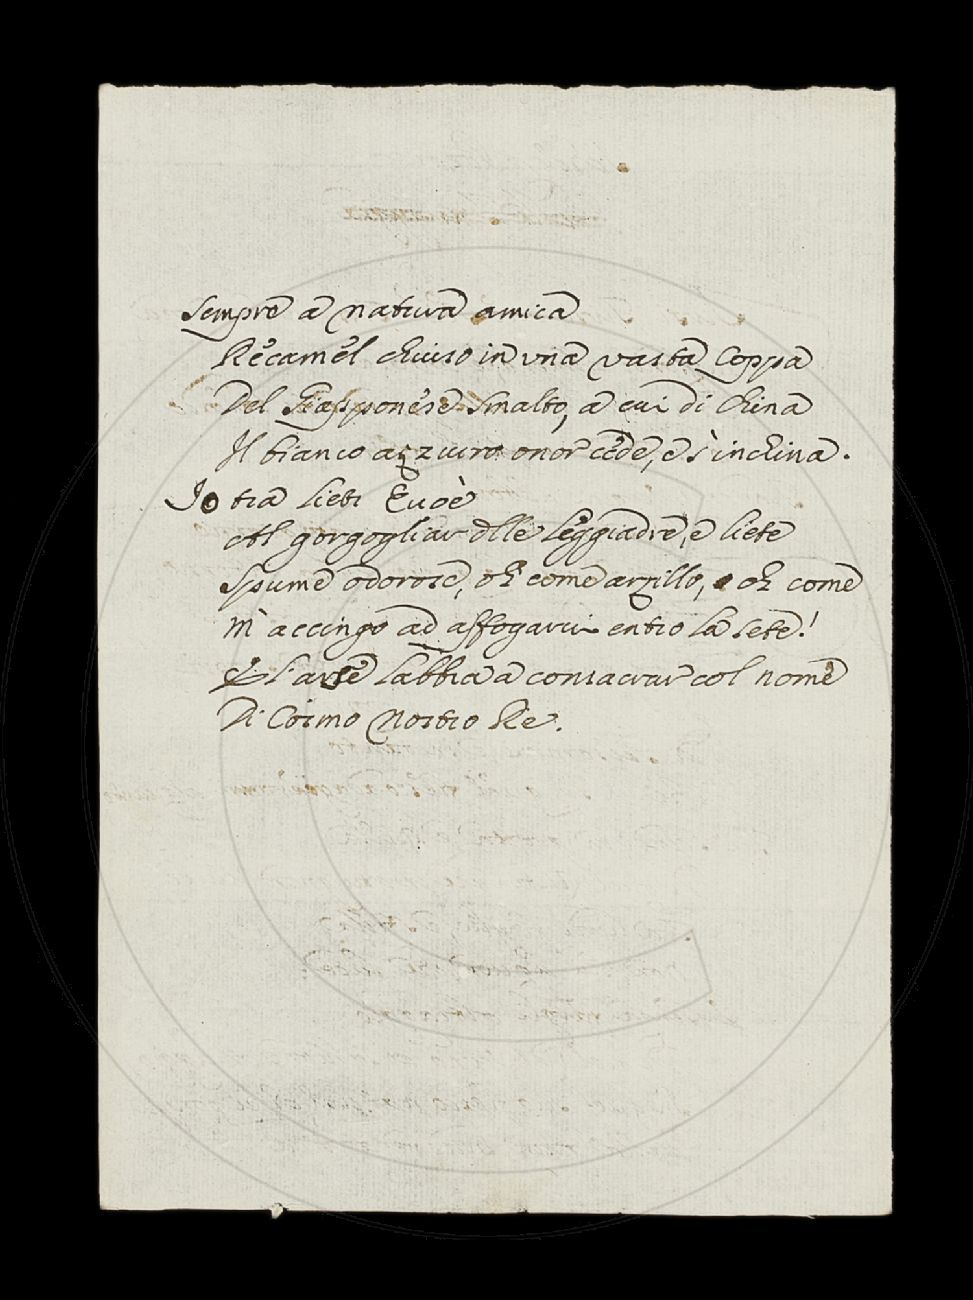 Sempre a natura amica
Recamel chiuso in vna vasta Coppa
Del Giapponese smalto, a cui di China
Il bianco azzurro onor cede, e s'inchina.
Io tra lieti Evoè
Al gorgogliar dlle leggiadre, e liete
Spume odorose, oh come arzillo, oh come
M'accingo ad affogarui entro la sete!
E l'arse labbia a consacrar col nome
Di Cosmo Nostro Re.